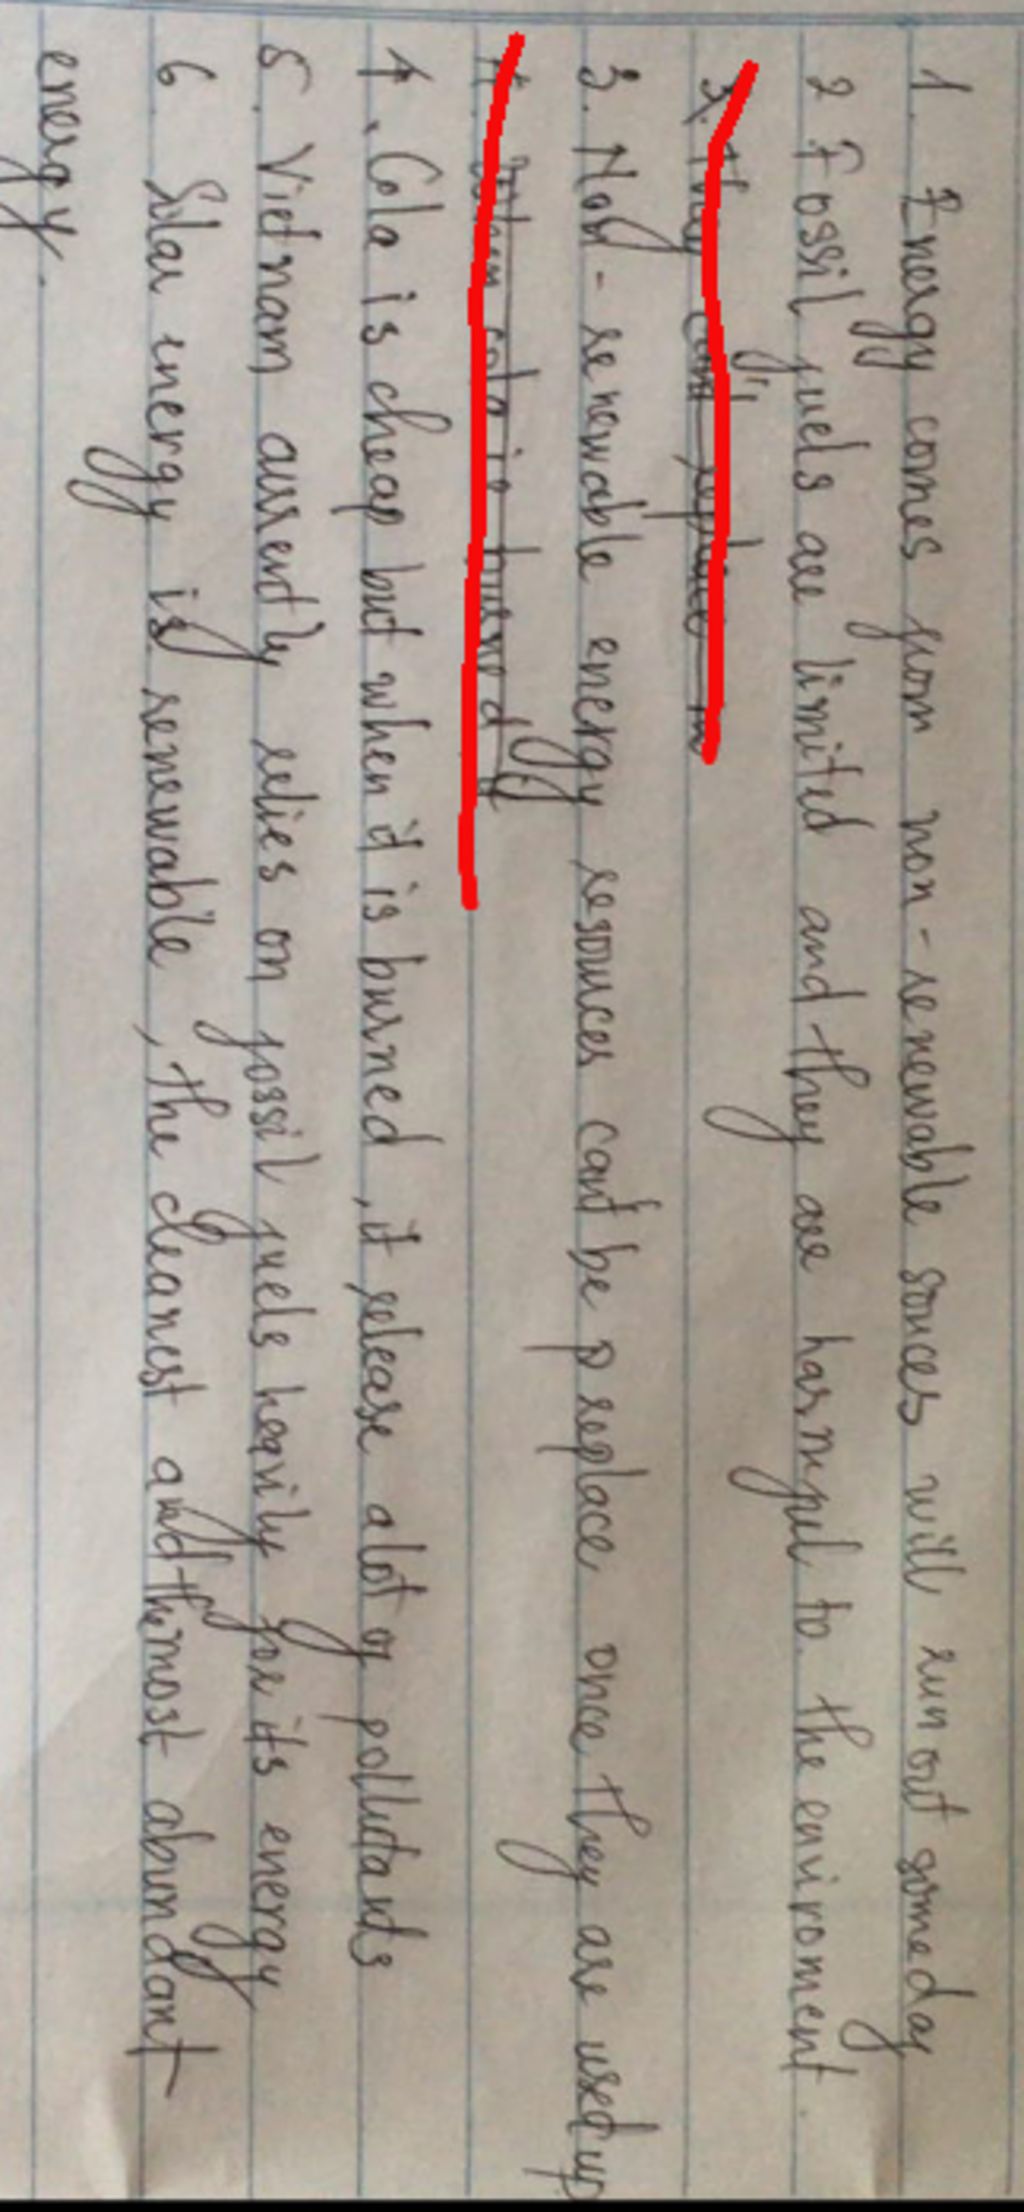 1. Energy comes from non-renewable souces will run out someday
2 Fossil fuels are limited and they are harmful to the enviroment.
3. They can't replace in
3. Non-renewable energy resouces can't be p replace once they are used up
4. When cola is burned
4. Cola is cheap but when it is burned, it release a lot of pollutants
5. Vietnam currently relies on fossil fuels heavily for its energy
6 Solar energy is renewable, the cleanest and the most abundant
energy.